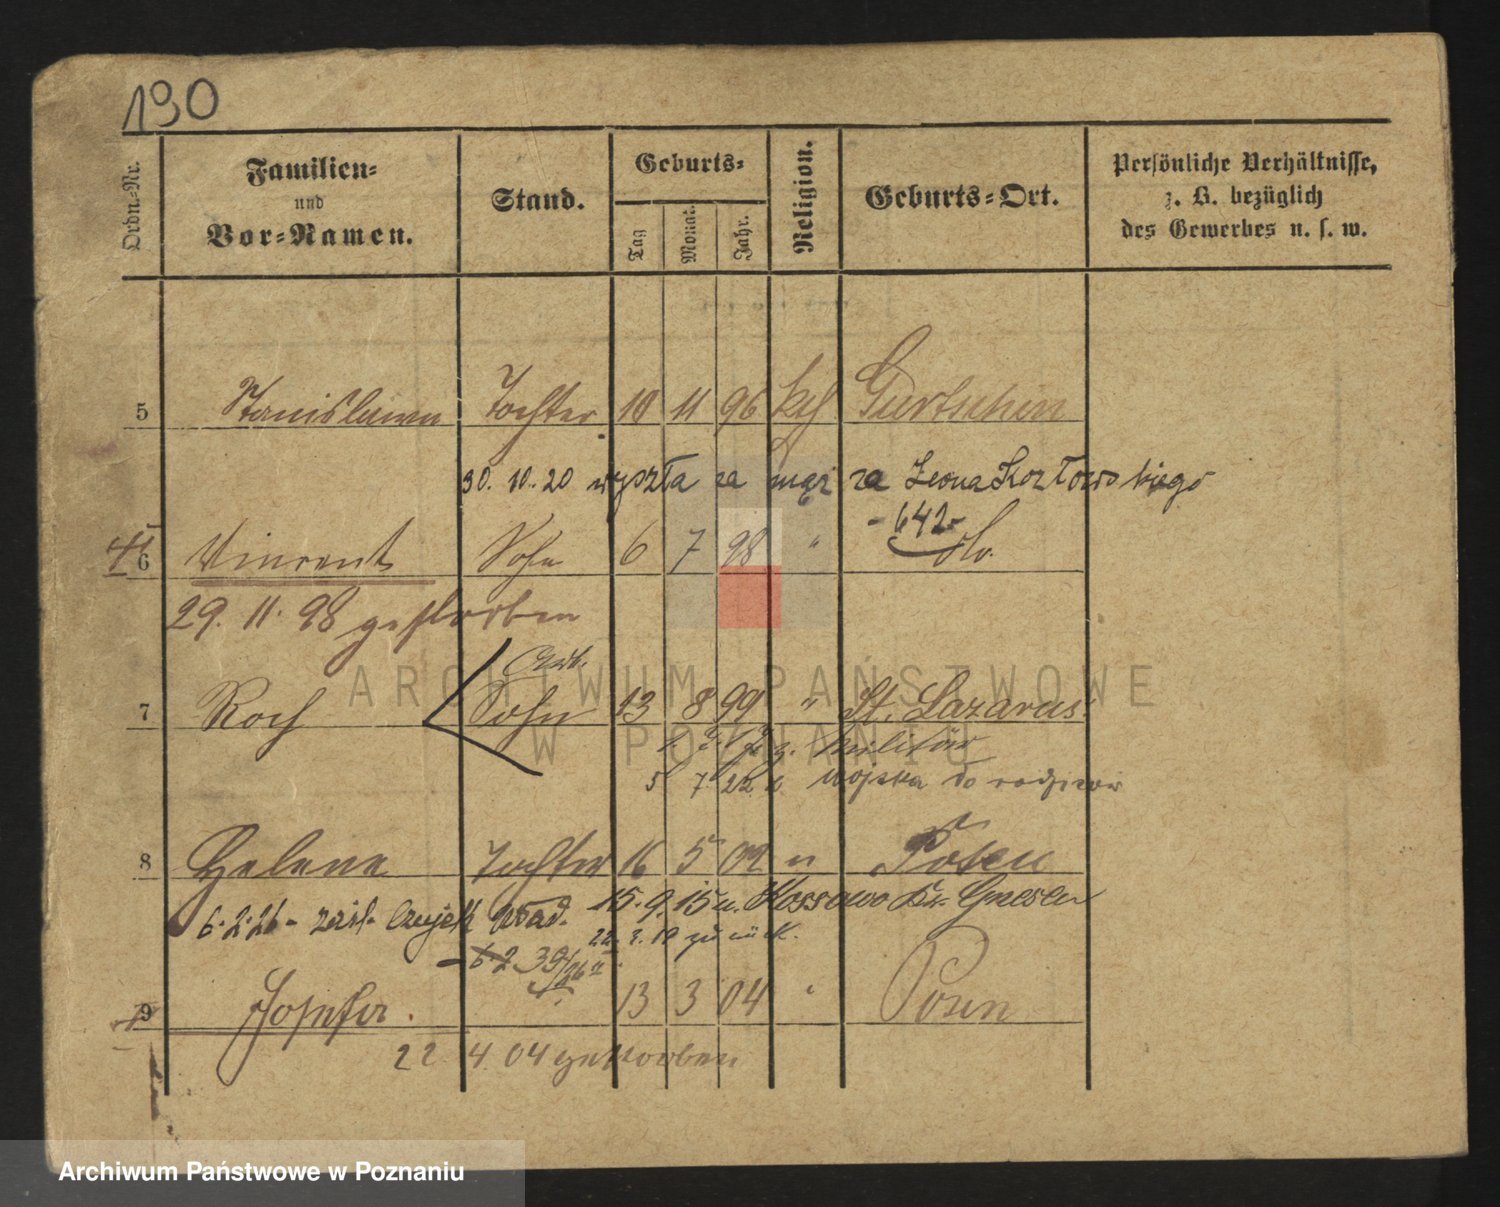 190
Ordn.-Nr.
Familien-
und
Vor-Namen.
Stand.
Geburts-
Tag
Monat.
Jahr.
Religion.
Geburts-Ort.
Persönliche Verhältnisse,
z. B. bezüglich
des Gewerbes u. s. w.
5 Stanislawa Tochter 10 11 96 kth Gurtschin
30. 10. 20 wyszła za mąż za Leona Kozłowskiego
-642-
6 Vincent Sohn 6 7 98 " do.
29. 11. 98 gestorben
7 Roch Sohn 13 8 99 " St. Lazarus
z. Militär
5 7 22 z wojska do rodziców
8 Helene Tochter 16 5 02 " Posen
15. 9. 15 n. Kossowo Kr. Gnesen
6.2.26 - Wład.
zurück.
9 Josefa. 13 3 04 " Posen
22 4. 04 gestorben
ARCHIWUM PAŃSTWOWE
W POZNANIU
Archiwum Państwowe w Poznaniu